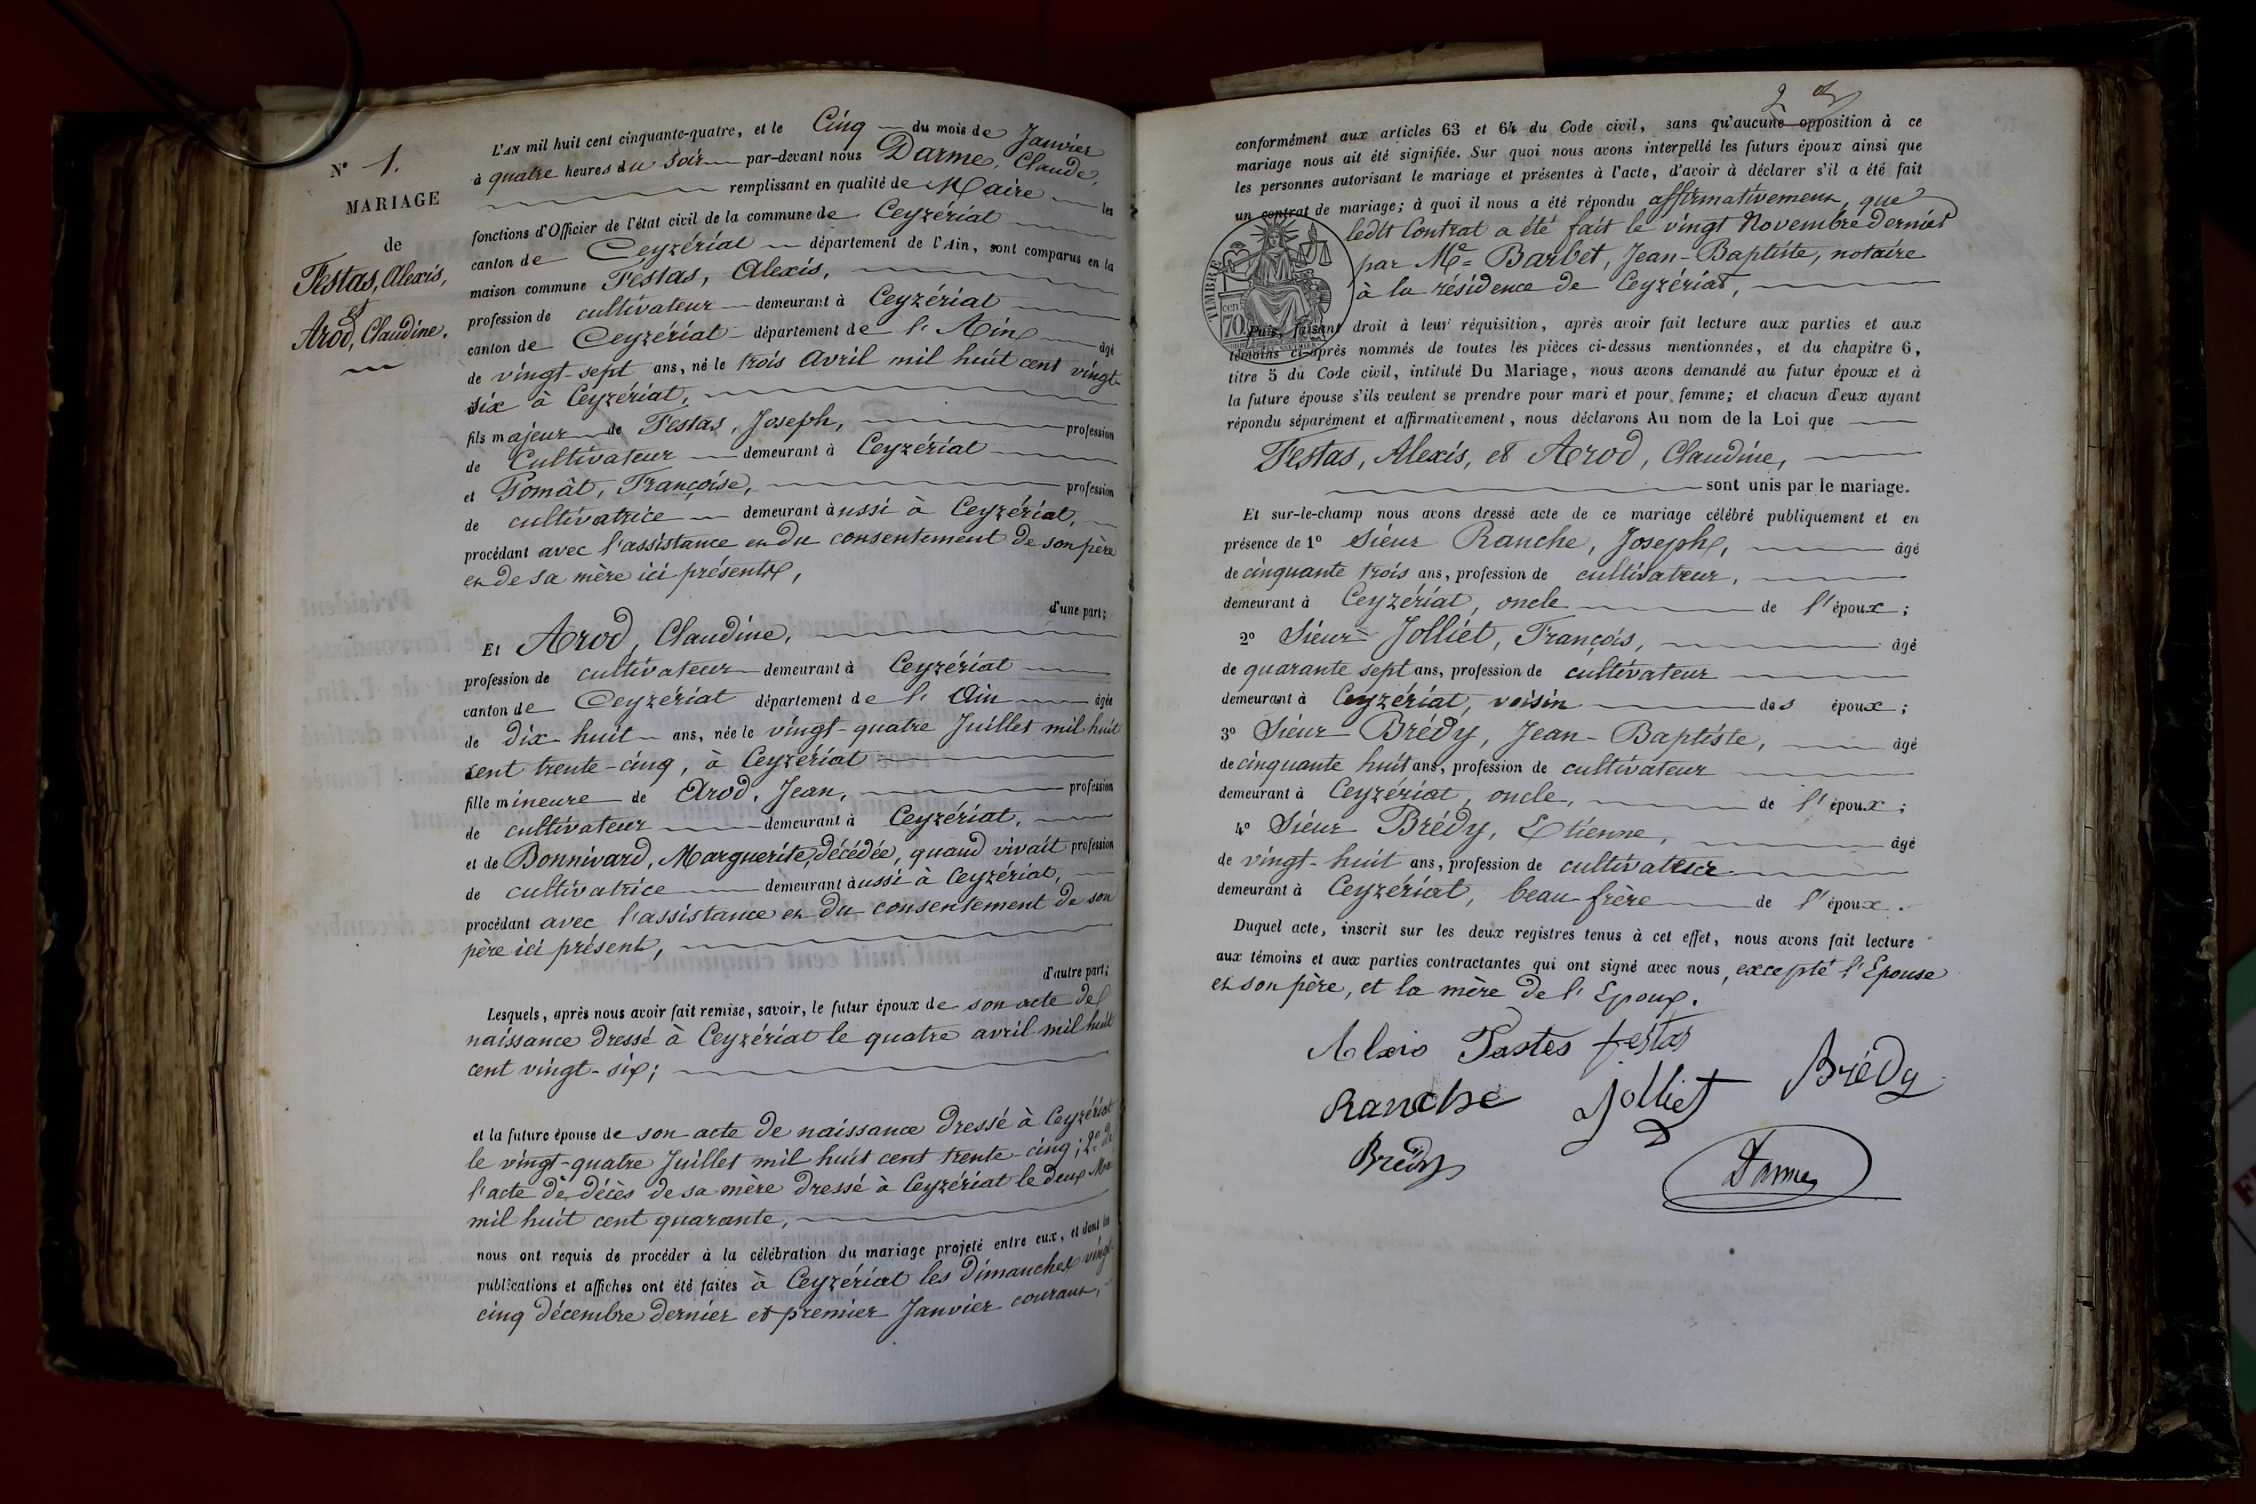 N° 1.
MARIAGE
de
Festas, Alexis,
et
Arod, Claudine.
L'AN mil huit cent cinquante-quatre, et le Cinq du mois de Janvier
à quatre heures du soir par-devant nous Darme, Claude,
remplissant en qualité de Maire les
fonctions d'Officier de l'état civil de la commune de Ceyzériat
canton de Ceyzériat département de l'Ain, sont comparus en la
maison commune Festas, Alexis,
profession de cultivateur demeurant à Ceyzériat
canton de Ceyzériat département de l'Ain âgé
de vingt-sept ans, né le trois avril mil huit cent vingt-
six à Ceyzériat,
fils majeur de Festas, Joseph, profession
de Cultivateur demeurant à Ceyzériat
et Pomât, Françoise, profession
de cultivatrice demeurant aussi à Ceyzériat,
procédant avec l'assistance et du consentement de son père
et de sa mère ici présents,
d'une part;
Et Arod, Claudine,
profession de cultivateur demeurant à Ceyzériat
canton de Ceyzériat département de l'Ain âgée
de dix-huit ans, née le vingt-quatre Juillet mil huit
cent trente-cinq, à Ceyzériat
fille mineure de Arod, Jean, profession
de cultivateur demeurant à Ceyzériat,
et de Bonnivard, Marguerite, décédée, quand vivait profession
de cultivatrice demeurant aussi à Ceyzériat,
procédant avec l'assistance et du consentement de son
père ici présent,
d'autre part;
Lesquels, après nous avoir fait remise, savoir, le futur époux de son acte de
naissance dressé à Ceyzériat le quatre avril mil huit
cent vingt-six;
et la future épouse de son acte de naissance dressé à Ceyzériat
le vingt-quatre Juillet mil huit cent trente-cinq; 2° de
l'acte de décès de sa mère dressé à Ceyzériat le deux
mil huit cent quarante,
nous ont requis de procéder à la célébration du mariage projeté entre eux, et dont les
publications et affiches ont été faites à Ceyzériat les dimanches vingt-
cinq décembre dernier et premier Janvier courant,
2
conformément aux articles 63 et 64 du Code civil, sans qu'aucune opposition à ce
mariage nous ait été signifiée. Sur quoi nous avons interpellé les futurs époux ainsi que
les personnes autorisant le mariage et présentes à l'acte, d'avoir à déclarer s'il a été fait
un contrat de mariage; à quoi il nous a été répondu affirmativement, que
ledit Contrat a été fait le vingt Novembre dernier
par Me Barbet, Jean-Baptiste, notaire
à la résidence de Ceyzériat,
TIMBRE
cen 70
Puis, faisant droit à leur réquisition, après avoir fait lecture aux parties et aux
témoins ci-après nommés de toutes les pièces ci-dessus mentionnées, et du chapitre 6,
titre 5 du Code civil, intitulé Du Mariage, nous avons demandé au futur époux et à
la future épouse s'ils veulent se prendre pour mari et pour femme; et chacun d'eux ayant
répondu séparément et affirmativement, nous déclarons Au nom de la Loi que
Festas, Alexis, et Arod, Claudine,
sont unis par le mariage.
Et sur-le-champ nous avons dressé acte de ce mariage célébré publiquement et en
présence de 1° Sieur Ranche, Joseph, âgé
de cinquante trois ans, profession de cultivateur,
demeurant à Ceyzériat, oncle de l'époux;
2° Sieur Jolliet, François, âgé
de quarante sept ans, profession de cultivateur
demeurant à Ceyzériat, voisin des époux;
3° Sieur Brédy, Jean-Baptiste, âgé
de cinquante huit ans, profession de cultivateur
demeurant à Ceyzériat, oncle, de l'époux;
4° Sieur Brédy, Etienne, âgé
de vingt-huit ans, profession de cultivateur
demeurant à Ceyzériat, beau-frère de l'époux.
Duquel acte, inscrit sur les deux registres tenus à cet effet, nous avons fait lecture
aux témoins et aux parties contractantes qui ont signé avec nous, excepté l'Epouse
et son père, et la mère de l'Epoux.
Alexis Fastes festas
Ranche Jolliet Brédy
Brédy Darme